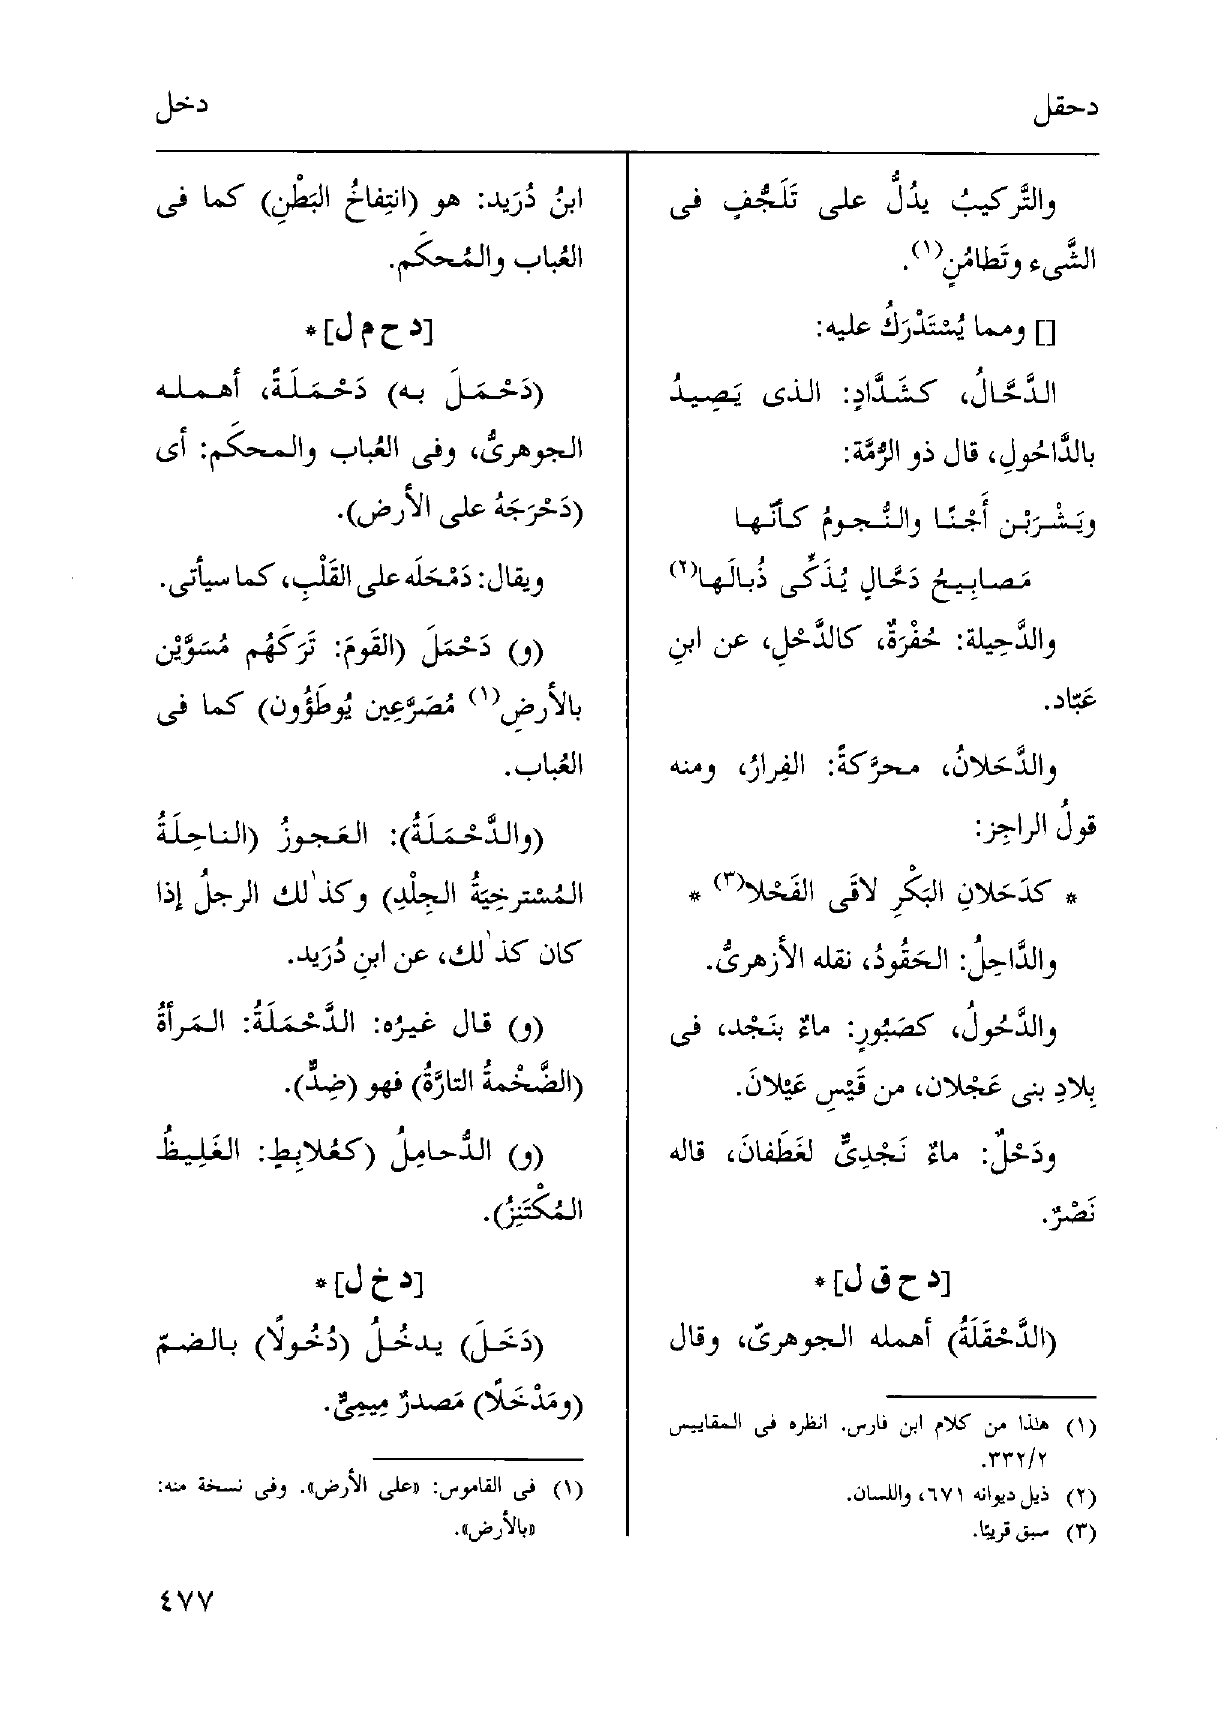 دحقل
دخل
والتَّركيبُ يدُلُّ على تَلَجُّفٍ فى
الشَّىء وتَطامُنٍ(١).
[] ومما يُسْتَدْرَكُ عليه:
الدَّحَّالُ، كشَدَّادٍ: الذى يَصِيدُ
بالدَّاحُولِ، قال ذو الرُّمَّة:
ويَشْرَبْن أَجْنًا والنُّجومُ كأنّها
مَصابِيحُ دَحَّالٍ يُذَكَّى ذُبالَها(٢)
والدَّحِيلة: حُفْرَةٌ، كالدَّحْلِ، عن ابنِ
عَبّاد.
والدَّحَلانُ، محرَّكةً: الفِرارُ، ومنه
قولُ الراجِز:
* كدَحَلانِ البَكْرِ لاقَى الفَحْلا(٣) *
والدَّاحِلُ: الحَقُودُ، نقله الأزهرىُّ.
والدَّحُولُ، كصَبُورٍ: ماءٌ بنَجْد، فى
بِلادِ بنى عَجْلان، من قَيْسِ عَيْلانَ.
ودَحْلٌ: ماءٌ نَجْدِىٌّ لغَطَفانَ، قاله
نَصْرٌ.
[د ح ق ل] *
(الدَّحْقَلَةُ) أهمله الجوهرىّ، وقال
(١) هذا من كلام ابن فارس. انظره فى المقاييس
٣٣٢/٢.
(٢) ذيل ديوانه ٦٧١، واللسان.
(٣) سبق قريبًا.
ابنُ دُرَيد: هو (انتِفاخُ البَطْنِ) كما فى
العُباب والمُحكَم.
[د ح م ل] *
(دَحْمَلَ به) دَحْمَلَةً، أهمله
الجوهرىُّ، وفى العُباب والمحكَم: أى
(دَحْرَجَهُ على الأَرض).
ويقال: دَمْحَلَه على القَلْبِ، كما سيأتى.
(و) دَحْمَلَ (القَومَ: تَرَكَهُم مُسَوَّيْن
بالأَرضِ(١) مُصَرَّعِين يُوطَؤُون) كما فى
العُباب.
(والدَّحْمَلَةُ): العَجوزُ (الناحِلَةُ
المُسْترخِيَةُ الجِلْدِ) وكذٰلك الرجلُ إذا
كان كذٰلك، عن ابنِ دُرَيد.
(و) قال غيرُه: الدَّحْمَلَةُ: المَرأةُ
(الضَّخْمةُ التارَّةُ) فهو (ضِدٌّ).
(و) الدُّحامِلُ (كعُلابِطٍ: الغَلِيظُ
المُكْتَنِزُ).
[د خ ل] *
(دَخَلَ) يدخُلُ (دُخُولًا) بالضمّ
(ومَدْخَلًا) مَصدرٌ مِيمِىٌّ.
(١) فى القاموس: «على الأرض». وفى نسخة منه:
«بالأرض».
٤٧٧